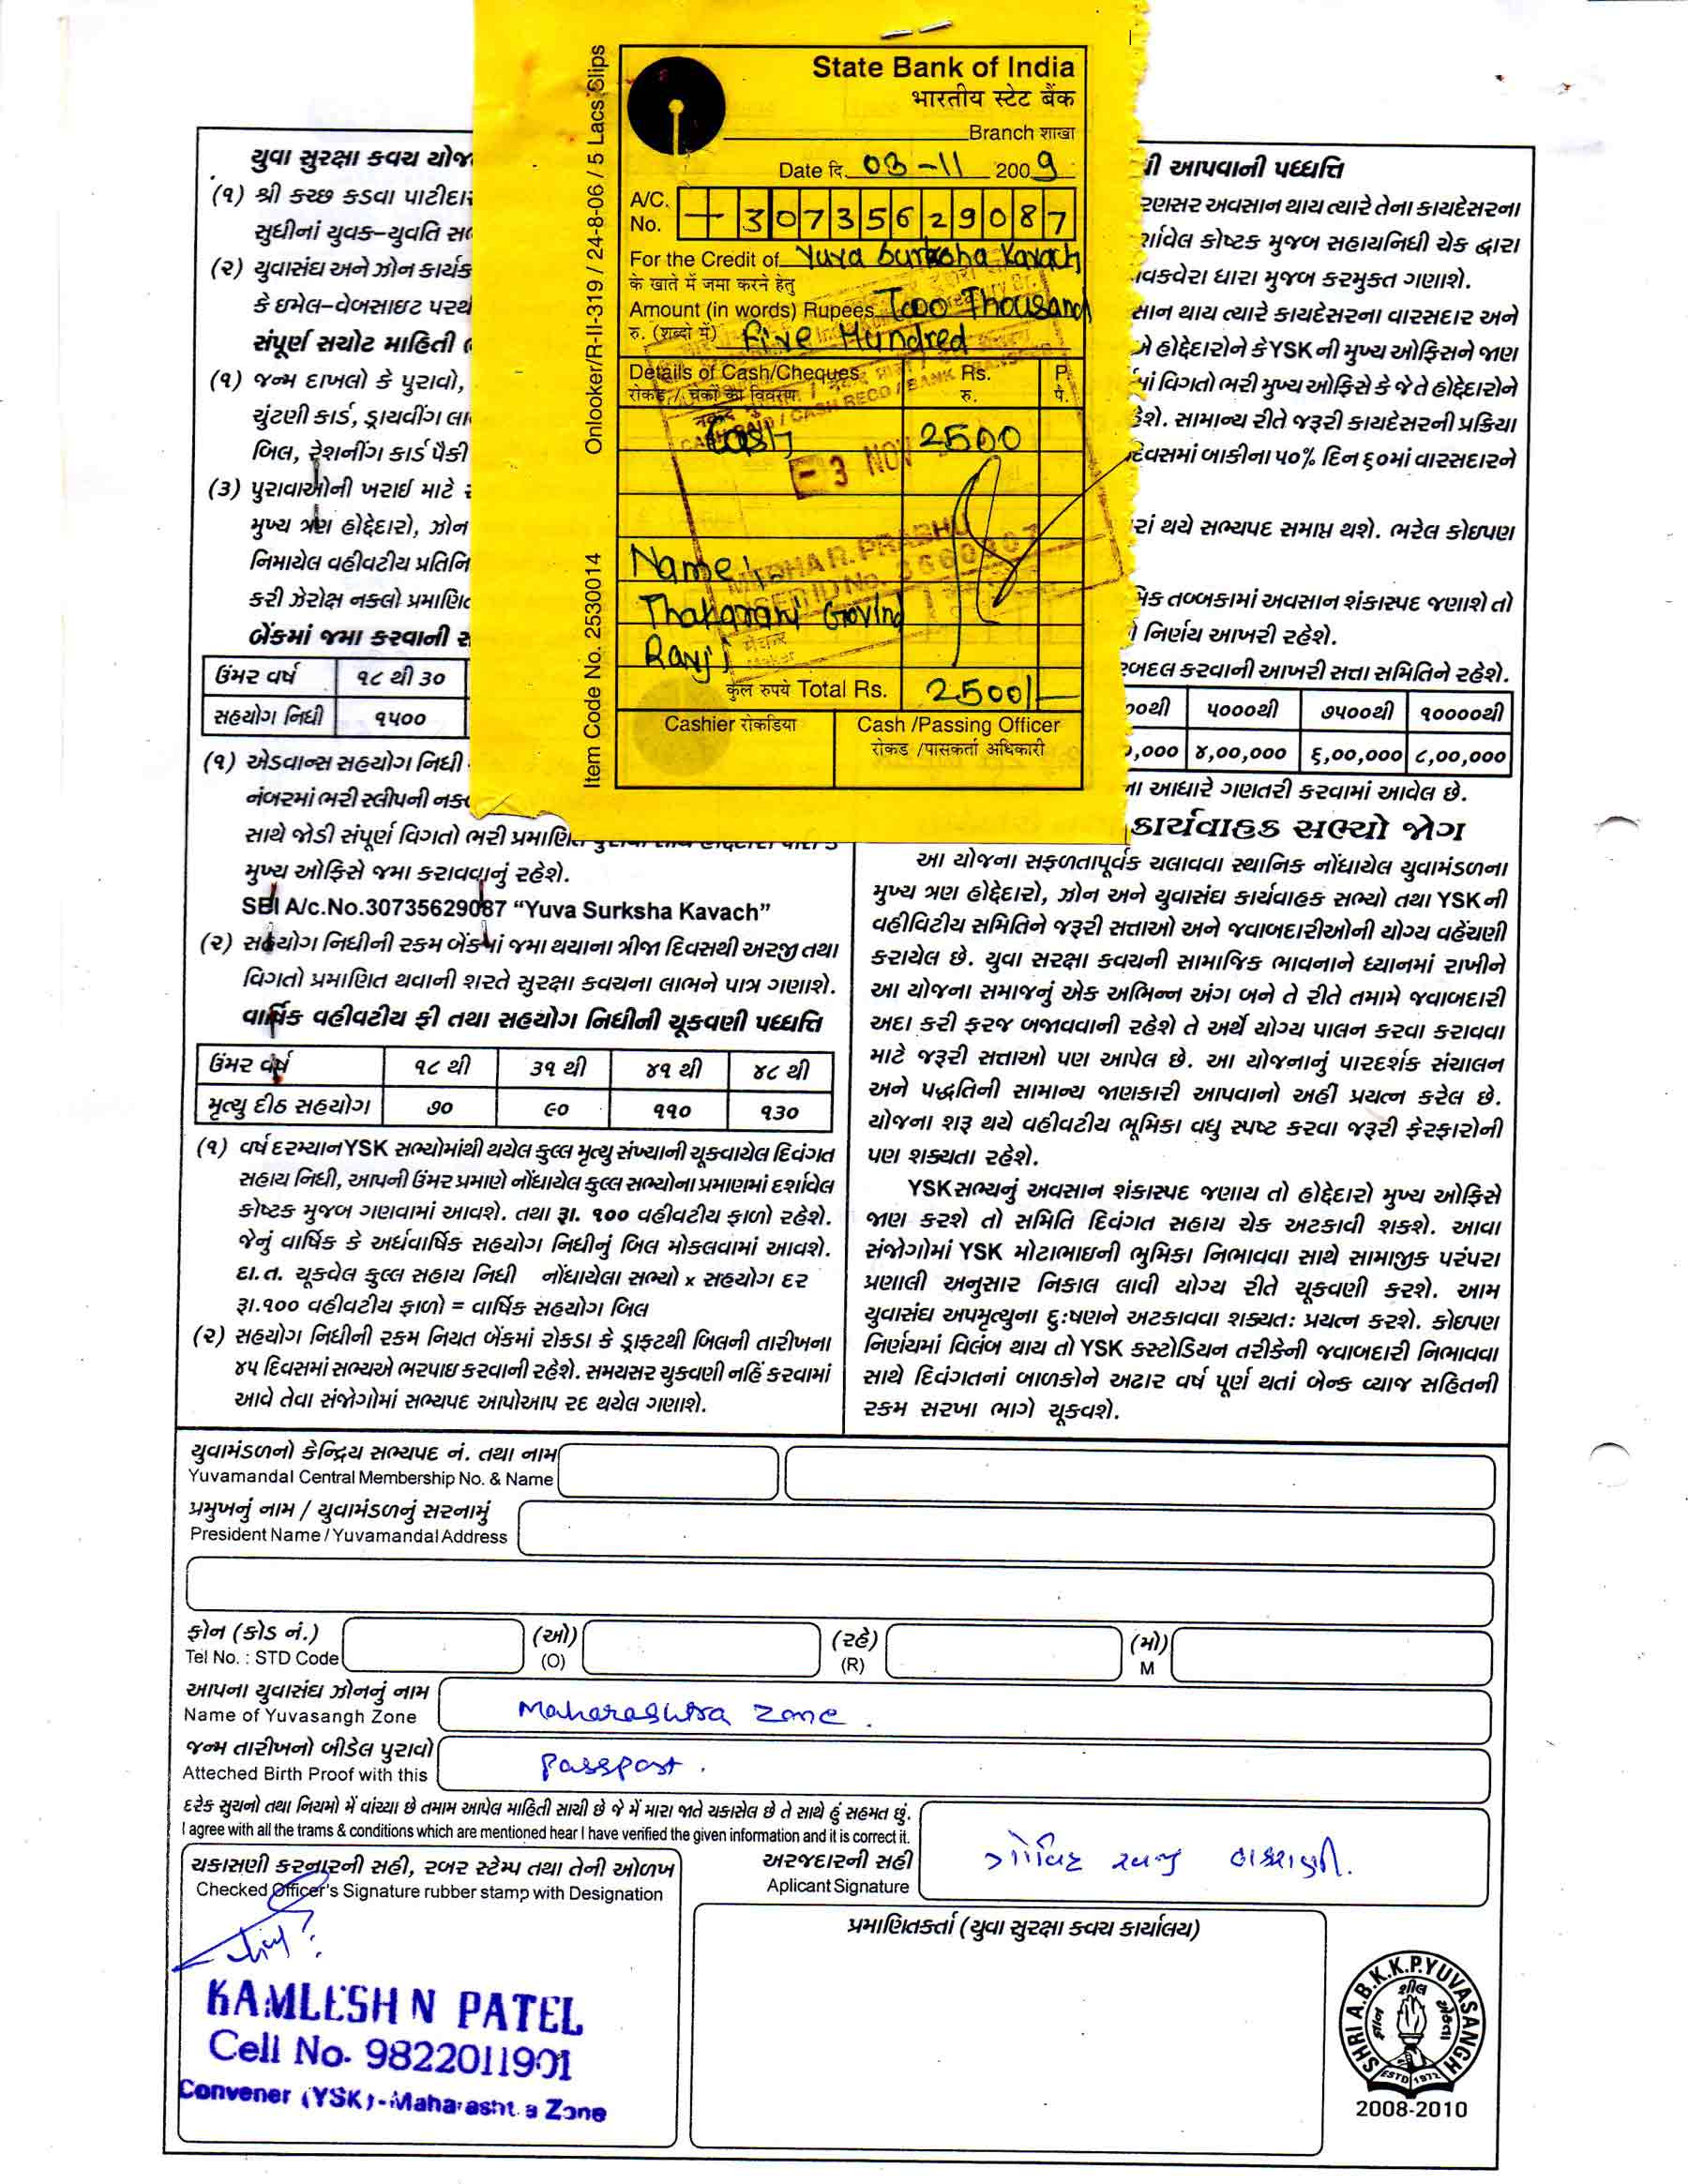 State Bank of India
भारतीय स्टेट बैंक
Branch शाखा
Date दि. 03-11 2009
A/C. No. + 30735629087
For the Credit of Yuva Surksha Kavach
के खाते में जमा करने हेतु
Amount (in words) Rupees Two Thousand
रु. (शब्दो में) Five Hundred
Details of Cash/Cheques Rs. P.
रोकड़ / चेकों का विवरण रु. पे.
Cash 2500
- 3 NOV
Name :-
Thakarani Govind
Ravji
कुल रुपये Total Rs. 2500/-
Cashier रोकडिया Cash /Passing Officer
रोकड /पासकर्ता अधिकारी
Onlooker/R-II-319 / 24-8-06 / 5 Lacs Slips
Item Code No. 2530014
યુવા સુરક્ષા કવચ યોજ
(૧) શ્રી કચ્છ કડવા પાટીદાર
સુધીનાં યુવક-યુવતિ સ
(૨) યુવાસંઘ અને ઝોન કાર્ય
કે ઇમેલ-વેબસાઇટ પરથ
સંપૂર્ણ સચોટ માહિતી
(૧) જન્મ દાખલો કે પુરાવો,
ચુંટણી કાર્ડ, ડ્રાયવીંગ લા
બિલ, રેશનીંગ કાર્ડ પૈકી
(૩) પુરાવાઓની ખરાઈ માટે
મુખ્ય ત્રણ હોદ્દેદારો, ઝોન
નિમાયેલ વહીવટીય પ્રતિનિ
કરી ઝેરોક્ષ નકલો પ્રમાણિ
બેંકમાં જમા કરવાની
ઉંમર વર્ષ ૧૮ થી ૩૦
સહયોગ નિધી ૧૫૦૦
(૧) એડવાન્સ સહયોગ નિધી
નંબરમાં ભરી સ્લીપની નક
સાથે જોડી સંપૂર્ણ વિગતો ભરી પ્રમાણિ
મુખ્ય ઓફિસે જમા કરાવવાનું રહેશે.
SBI A/c.No.30735629087 “Yuva Surksha Kavach”
(૨) સહયોગ નિધીની રકમ બેંકમાં જમા થયાના ત્રીજા દિવસથી અરજી તથા
વિગતો પ્રમાણિત થવાની શરતે સુરક્ષા કવચના લાભને પાત્ર ગણાશે.
વાર્ષિક વહીવટીય ફી તથા સહયોગ નિધીની ચૂકવણી પધ્ધતિ
ઉંમર વર્ષ ૧૮ થી ૩૧ થી ૪૧ થી ૪૮ થી
મૃત્યુ દીઠ સહયોગ ૭૦ ૯૦ ૧૧૦ ૧૩૦
(૧) વર્ષ દરમ્યાન YSK સભ્યોમાંથી થયેલ કુલ્લ મૃત્યુ સંખ્યાની ચૂકવાયેલ દિવંગત
સહાય નિધી, આપની ઉંમર પ્રમાણે નોંધાયેલ કુલ્લ સભ્યોના પ્રમાણમાં દર્શાવેલ
કોષ્ટક મુજબ ગણવામાં આવશે. તથા રૂા. ૧૦૦ વહીવટીય ફાળો રહેશે.
જેનું વાર્ષિક કે અર્ધવાર્ષિક સહયોગ નિધીનું બિલ મોકલવામાં આવશે.
દા.ત. ચૂકવેલ કુલ્લ સહાય નિધી નોંધાયેલા સભ્યો x સહયોગ દર
રૂા.૧૦૦ વહીવટીય ફાળો = વાર્ષિક સહયોગ બિલ
(૨) સહયોગ નિધીની રકમ નિયત બેંકમાં રોકડા કે ડ્રાફ્ટથી બિલની તારીખના
૪૫ દિવસમાં સભ્યએ ભરપાઇ કરવાની રહેશે. સમયસર ચુકવણી નહિં કરવામાં
આવે તેવા સંજોગોમાં સભ્યપદ આપોઆપ રદ થયેલ ગણાશે.
ની આપવાની પધ્ધતિ
રણસર અવસાન થાય ત્યારે તેના કાયદેસરના
ર્શાવેલ કોષ્ટક મુજબ સહાયનિધી ચેક દ્વારા
વકવેરા ધારા મુજબ કરમુક્ત ગણાશે.
સાન થાય ત્યારે કાયદેસરના વારસદાર અને
હોદ્દેદારોને કે YSK ની મુખ્ય ઓફિસને જાણ
માં વિગતો ભરી મુખ્ય ઓફિસે કે જે તે હોદ્દેદારોને
હેશે. સામાન્ય રીતે જરૂરી કાયદેસરની પ્રક્રિયા
દિવસમાં બાકીના ૫૦% દિન ૬૦માં વારસદારને
રાં થયે સભ્યપદ સમાપ્ત થશે. ભરેલ કોઇપણ
મિક તબ્બકામાં અવસાન શંકાસ્પદ જણાશે તો
નિર્ણય આખરી રહેશે.
રબદલ કરવાની આખરી સત્તા સમિતિને રહેશે.
૦૦થી ૫૦૦૦થી ૭૫૦૦થી ૧૦૦૦૦થી
,૦૦૦ ૪,૦૦,૦૦૦ ૬,૦૦,૦૦૦ ૮,૦૦,૦૦૦
ના આધારે ગણતરી કરવામાં આવેલ છે.
કાર્યવાહક સભ્યો જોગ
આ યોજના સફળતાપૂર્વક ચલાવવા સ્થાનિક નોંધાયેલ યુવામંડળના
મુખ્ય ત્રણ હોદ્દેદારો, ઝોન અને યુવાસંઘ કાર્યવાહક સભ્યો તથા YSK ની
વહીવિટીય સમિતિને જરૂરી સત્તાઓ અને જવાબદારીઓની યોગ્ય વહેંચણી
કરાયેલ છે. યુવા સરક્ષા કવચની સામાજિક ભાવનાને ધ્યાનમાં રાખીને
આ યોજના સમાજનું એક અભિન્ન અંગ બને તે રીતે તમામે જવાબદારી
અદા કરી ફરજ બજાવવાની રહેશે તે અર્થે યોગ્ય પાલન કરવા કરાવવા
માટે જરૂરી સત્તાઓ પણ આપેલ છે. આ યોજનાનું પારદર્શક સંચાલન
અને પદ્ધતિની સામાન્ય જાણકારી આપવાનો અહીં પ્રયત્ન કરેલ છે.
યોજના શરૂ થયે વહીવટીય ભૂમિકા વધુ સ્પષ્ટ કરવા જરૂરી ફેરફારોની
પણ શક્યતા રહેશે.
YSK સભ્યનું અવસાન શંકાસ્પદ જણાય તો હોદ્દેદારો મુખ્ય ઓફિસે
જાણ કરશે તો સમિતિ દિવંગત સહાય ચેક અટકાવી શકશે. આવા
સંજોગોમાં YSK મોટાભાઇની ભુમિકા નિભાવવા સાથે સામાજીક પરંપરા
પ્રણાલી અનુસાર નિકાલ લાવી યોગ્ય રીતે ચૂકવણી કરશે. આમ
યુવાસંઘ અપમૃત્યુના દુ:ષણને અટકાવવા શક્યત: પ્રયત્ન કરશે. કોઇપણ
નિર્ણયમાં વિલંબ થાય તો YSK કસ્ટોડિયન તરીકેની જવાબદારી નિભાવવા
સાથે દિવંગતનાં બાળકોને અઢાર વર્ષ પૂર્ણ થતાં બેન્ક વ્યાજ સહિતની
રકમ સરખા ભાગે ચૂકવશે.
યુવામંડળનો કેન્દ્રિય સભ્યપદ નં. તથા નામ
Yuvamandal Central Membership No. & Name
પ્રમુખનું નામ / યુવામંડળનું સરનામું
President Name / Yuvamandal Address
ફોન (કોડ નં.) (ઓ) (રહે) (મો)
Tel No. : STD Code (O) (R) M
આપના યુવાસંઘ ઝોનનું નામ
Name of Yuvasangh Zone Maharashtra zone.
જન્મ તારીખનો બીડેલ પુરાવો
Atteched Birth Proof with this Passport.
દરેક સુચનો તથા નિયમો મેં વાંચ્યા છે તમામ આપેલ માહિતી સાચી છે જે મેં મારા જાતે ચકાસેલ છે તે સાથે હું સહમત છું.
I agree with all the trams & conditions which are mentioned hear I have verified the given information and it is correct it.
અરજદારની સહી
Aplicant Signature
ચકાસણી કરનારની સહી, રબર સ્ટેમ્પ તથા તેની ઓળખ
Checked Officer's Signature rubber stamp with Designation
KAMLESH N PATEL
Cell No. 9822011901
Convener (YSK)-Maharashtra Zone
પ્રમાણિતકર્તા (યુવા સુરક્ષા કવચ કાર્યાલય)
SHRI A.B.K.K.P. YUVASANGH
ESTD 1972
2008-2010